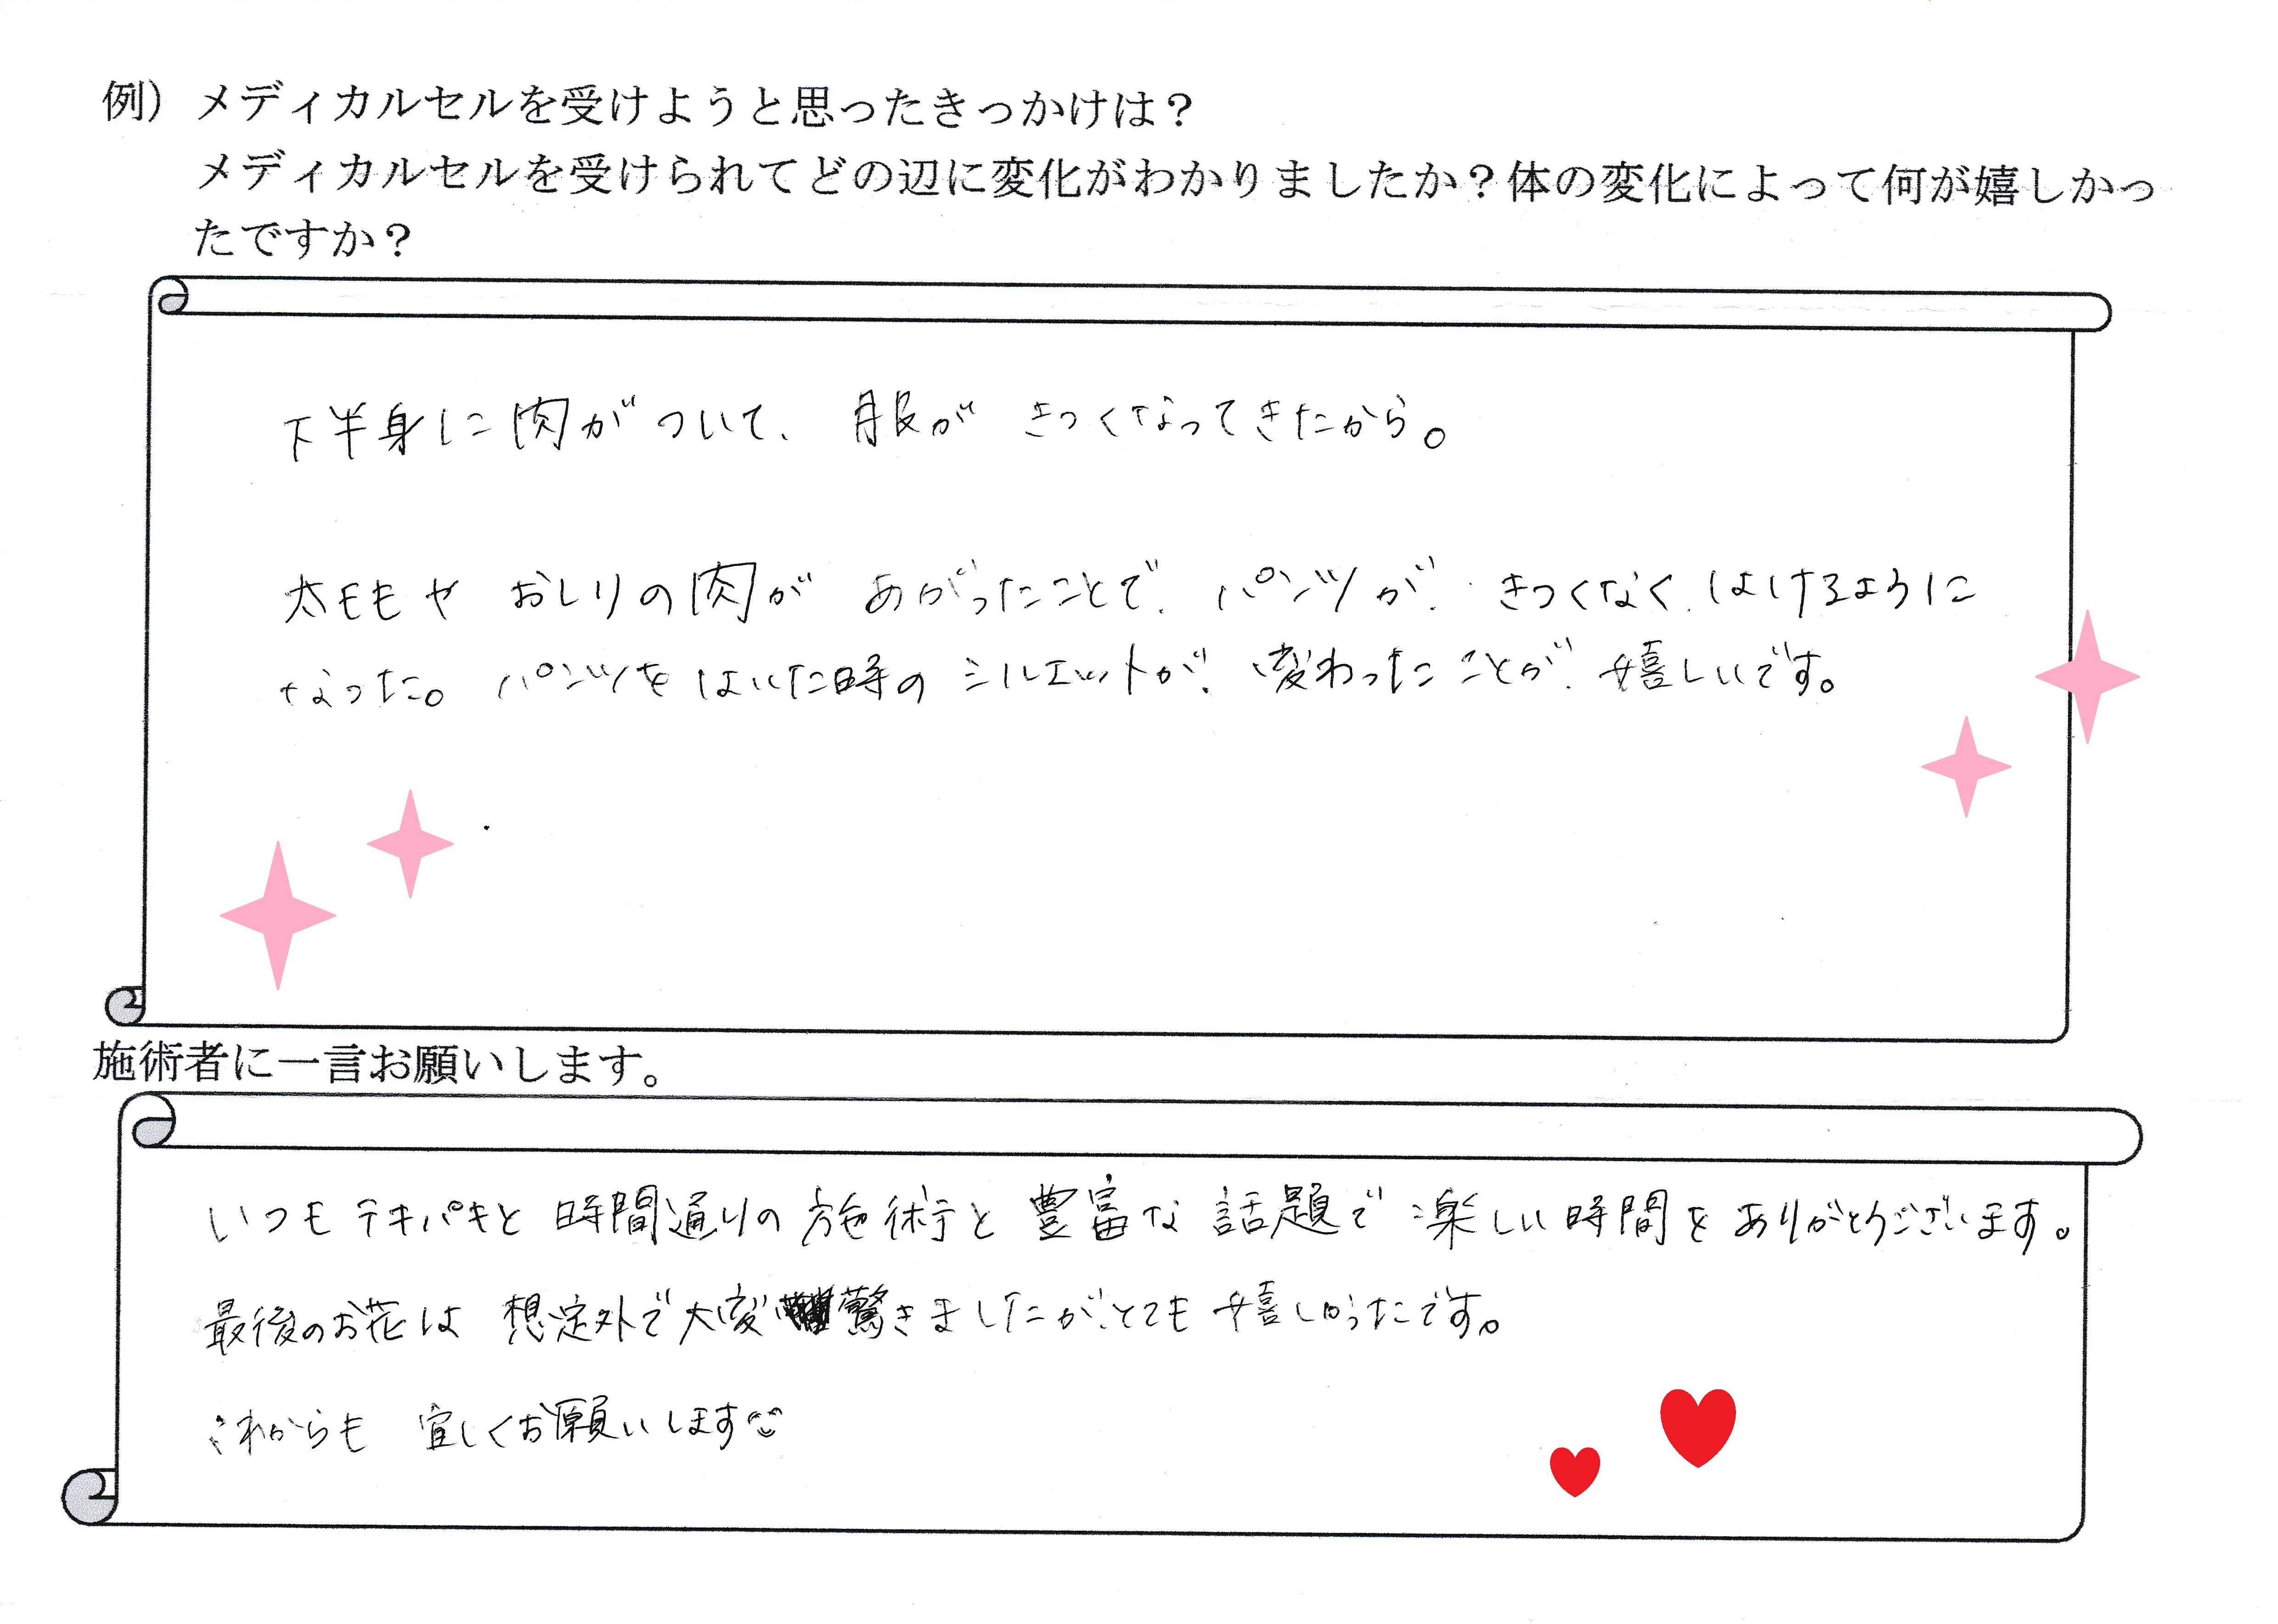 例）メディカルセルを受けようと思ったきっかけは？
メディカルセルを受けられてどの辺に変化がわかりましたか？体の変化によって何が嬉しかっ
たですか？
下半身に肉がついて、服がきつくなってきたから。
太モモや おしりの肉が あがったことで、パンツが、きつくなく、はけるように
なった。パンツをはいた時のシルエットが、変わったことが、嬉しいです。
施術者に一言お願いします。
いつもテキパキと時間通りの施術と豊富な話題で楽しい時間をありがとうございます。
最後のお花は想定外で大変驚きましたが、とても嬉しかったです。
これからも 宜しくお願いします